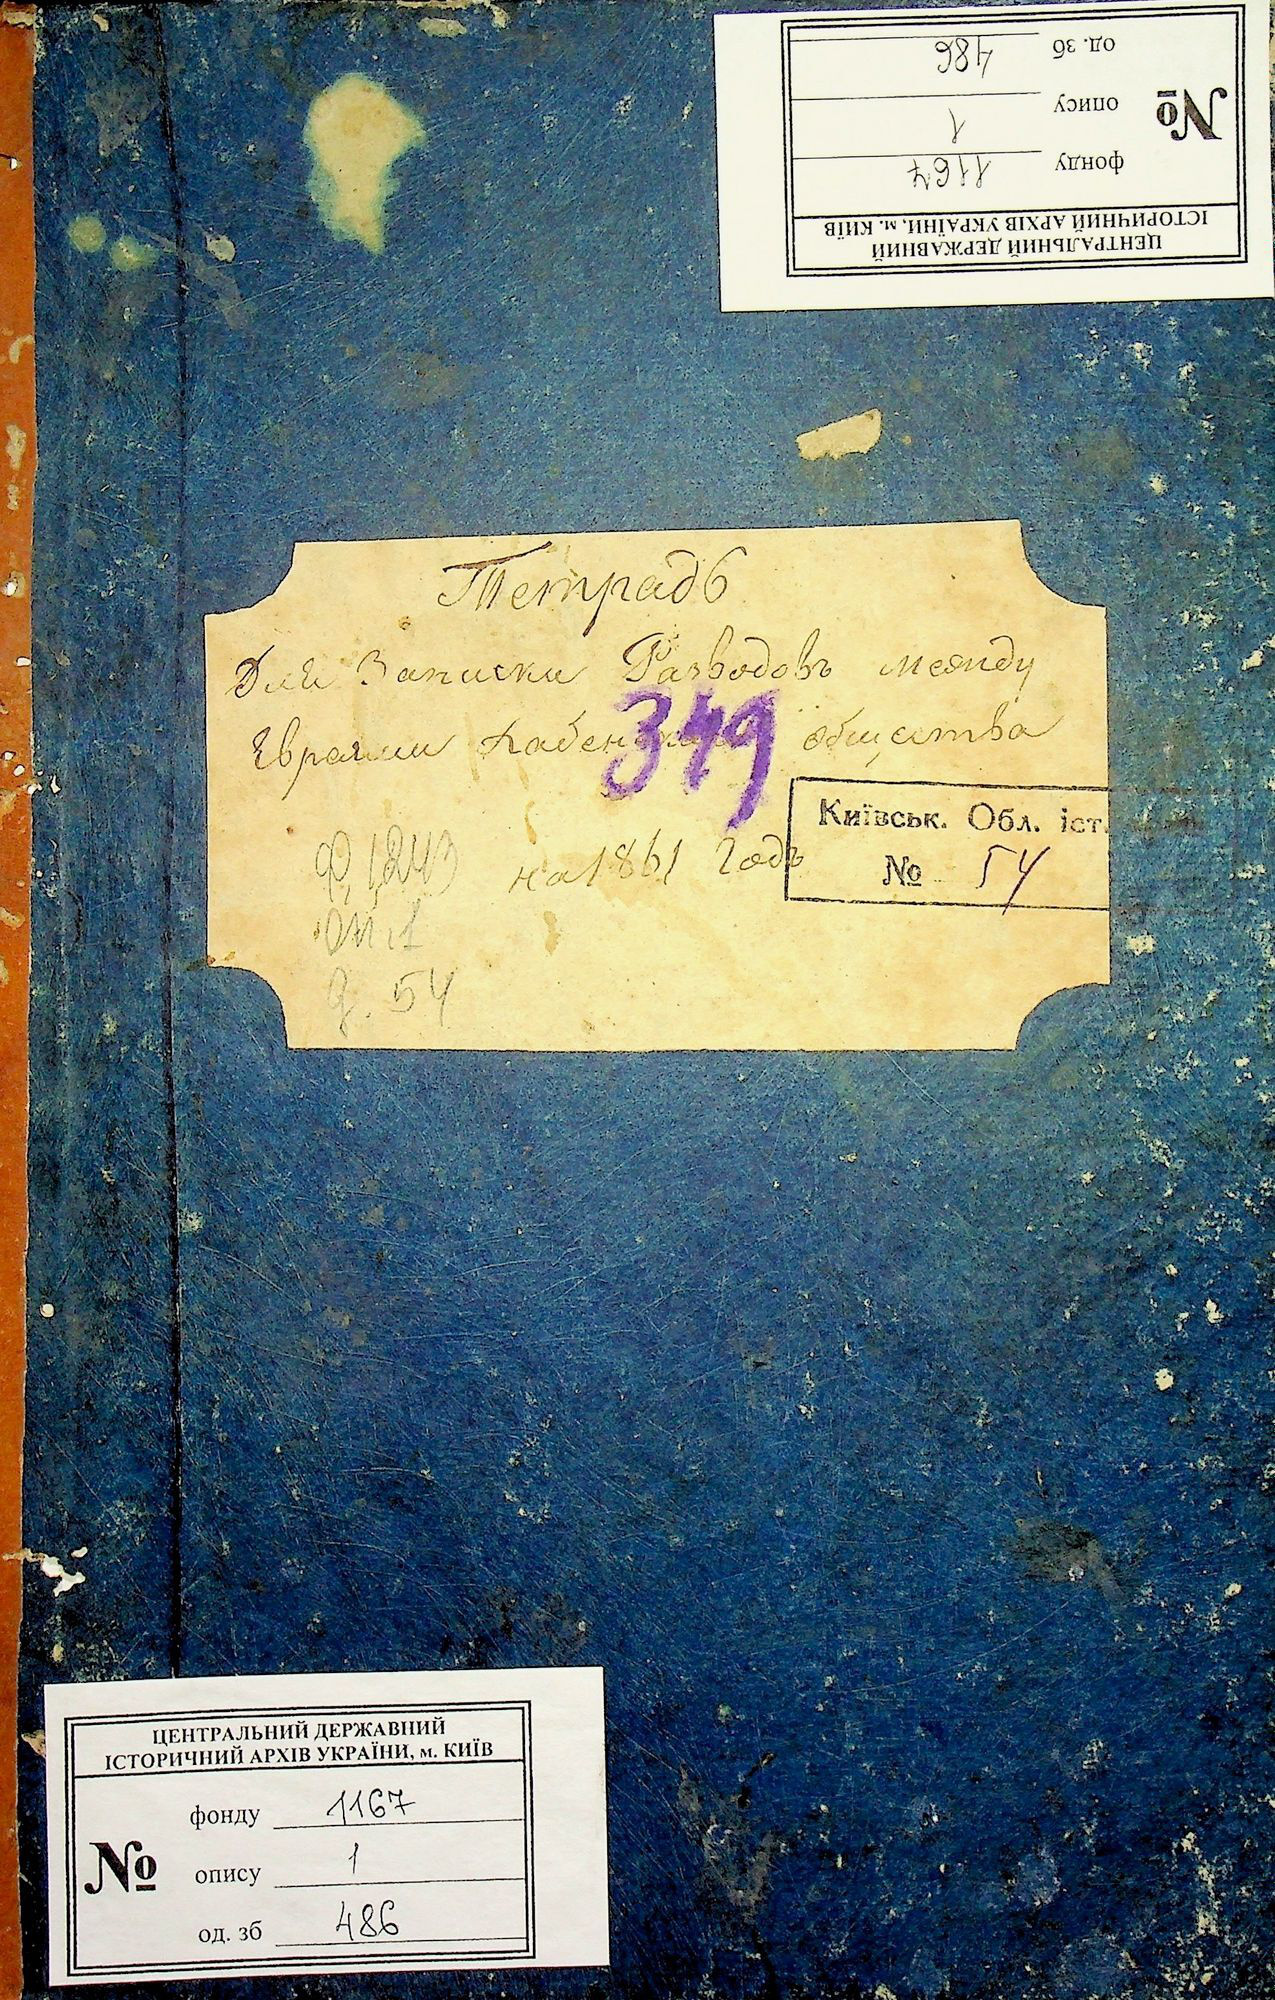 ЦЕНТРАЛЬНИЙ ДЕРЖАВНИЙ
ІСТОРИЧНИЙ АРХІВ УКРАЇНИ, м. КИЇВ
фонду 1167
№ опису 1
од. зб 486
Тетрадь
Для Записки Разводовъ между
Евреями общества
349
на 1861 годъ
Київськ. Обл. іст.
№ 54
Ф. 1243
оп. 1
д. 54
ЦЕНТРАЛЬНИЙ ДЕРЖАВНИЙ
ІСТОРИЧНИЙ АРХІВ УКРАЇНИ, м. КИЇВ
фонду 1167
№ опису 1
од. зб 486